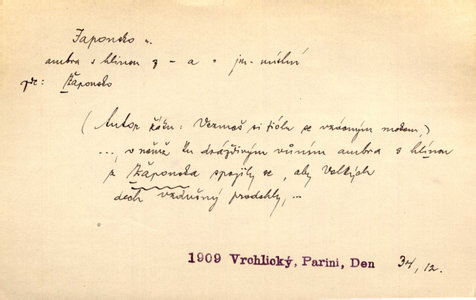 Japonsko n.
ambra s hlinou z - a * jm. místní
zř: Žaponsko
(Autor káže: Vezmeš si fiólu se vzácným mokem,)
..., v němž ku dráždivým vůním ambra s hlínou
z Žaponska spojily se, aby Velkých
dech vzdušný prodchly, ...
1909 Vrchlický, Parini, Den 34, 12.